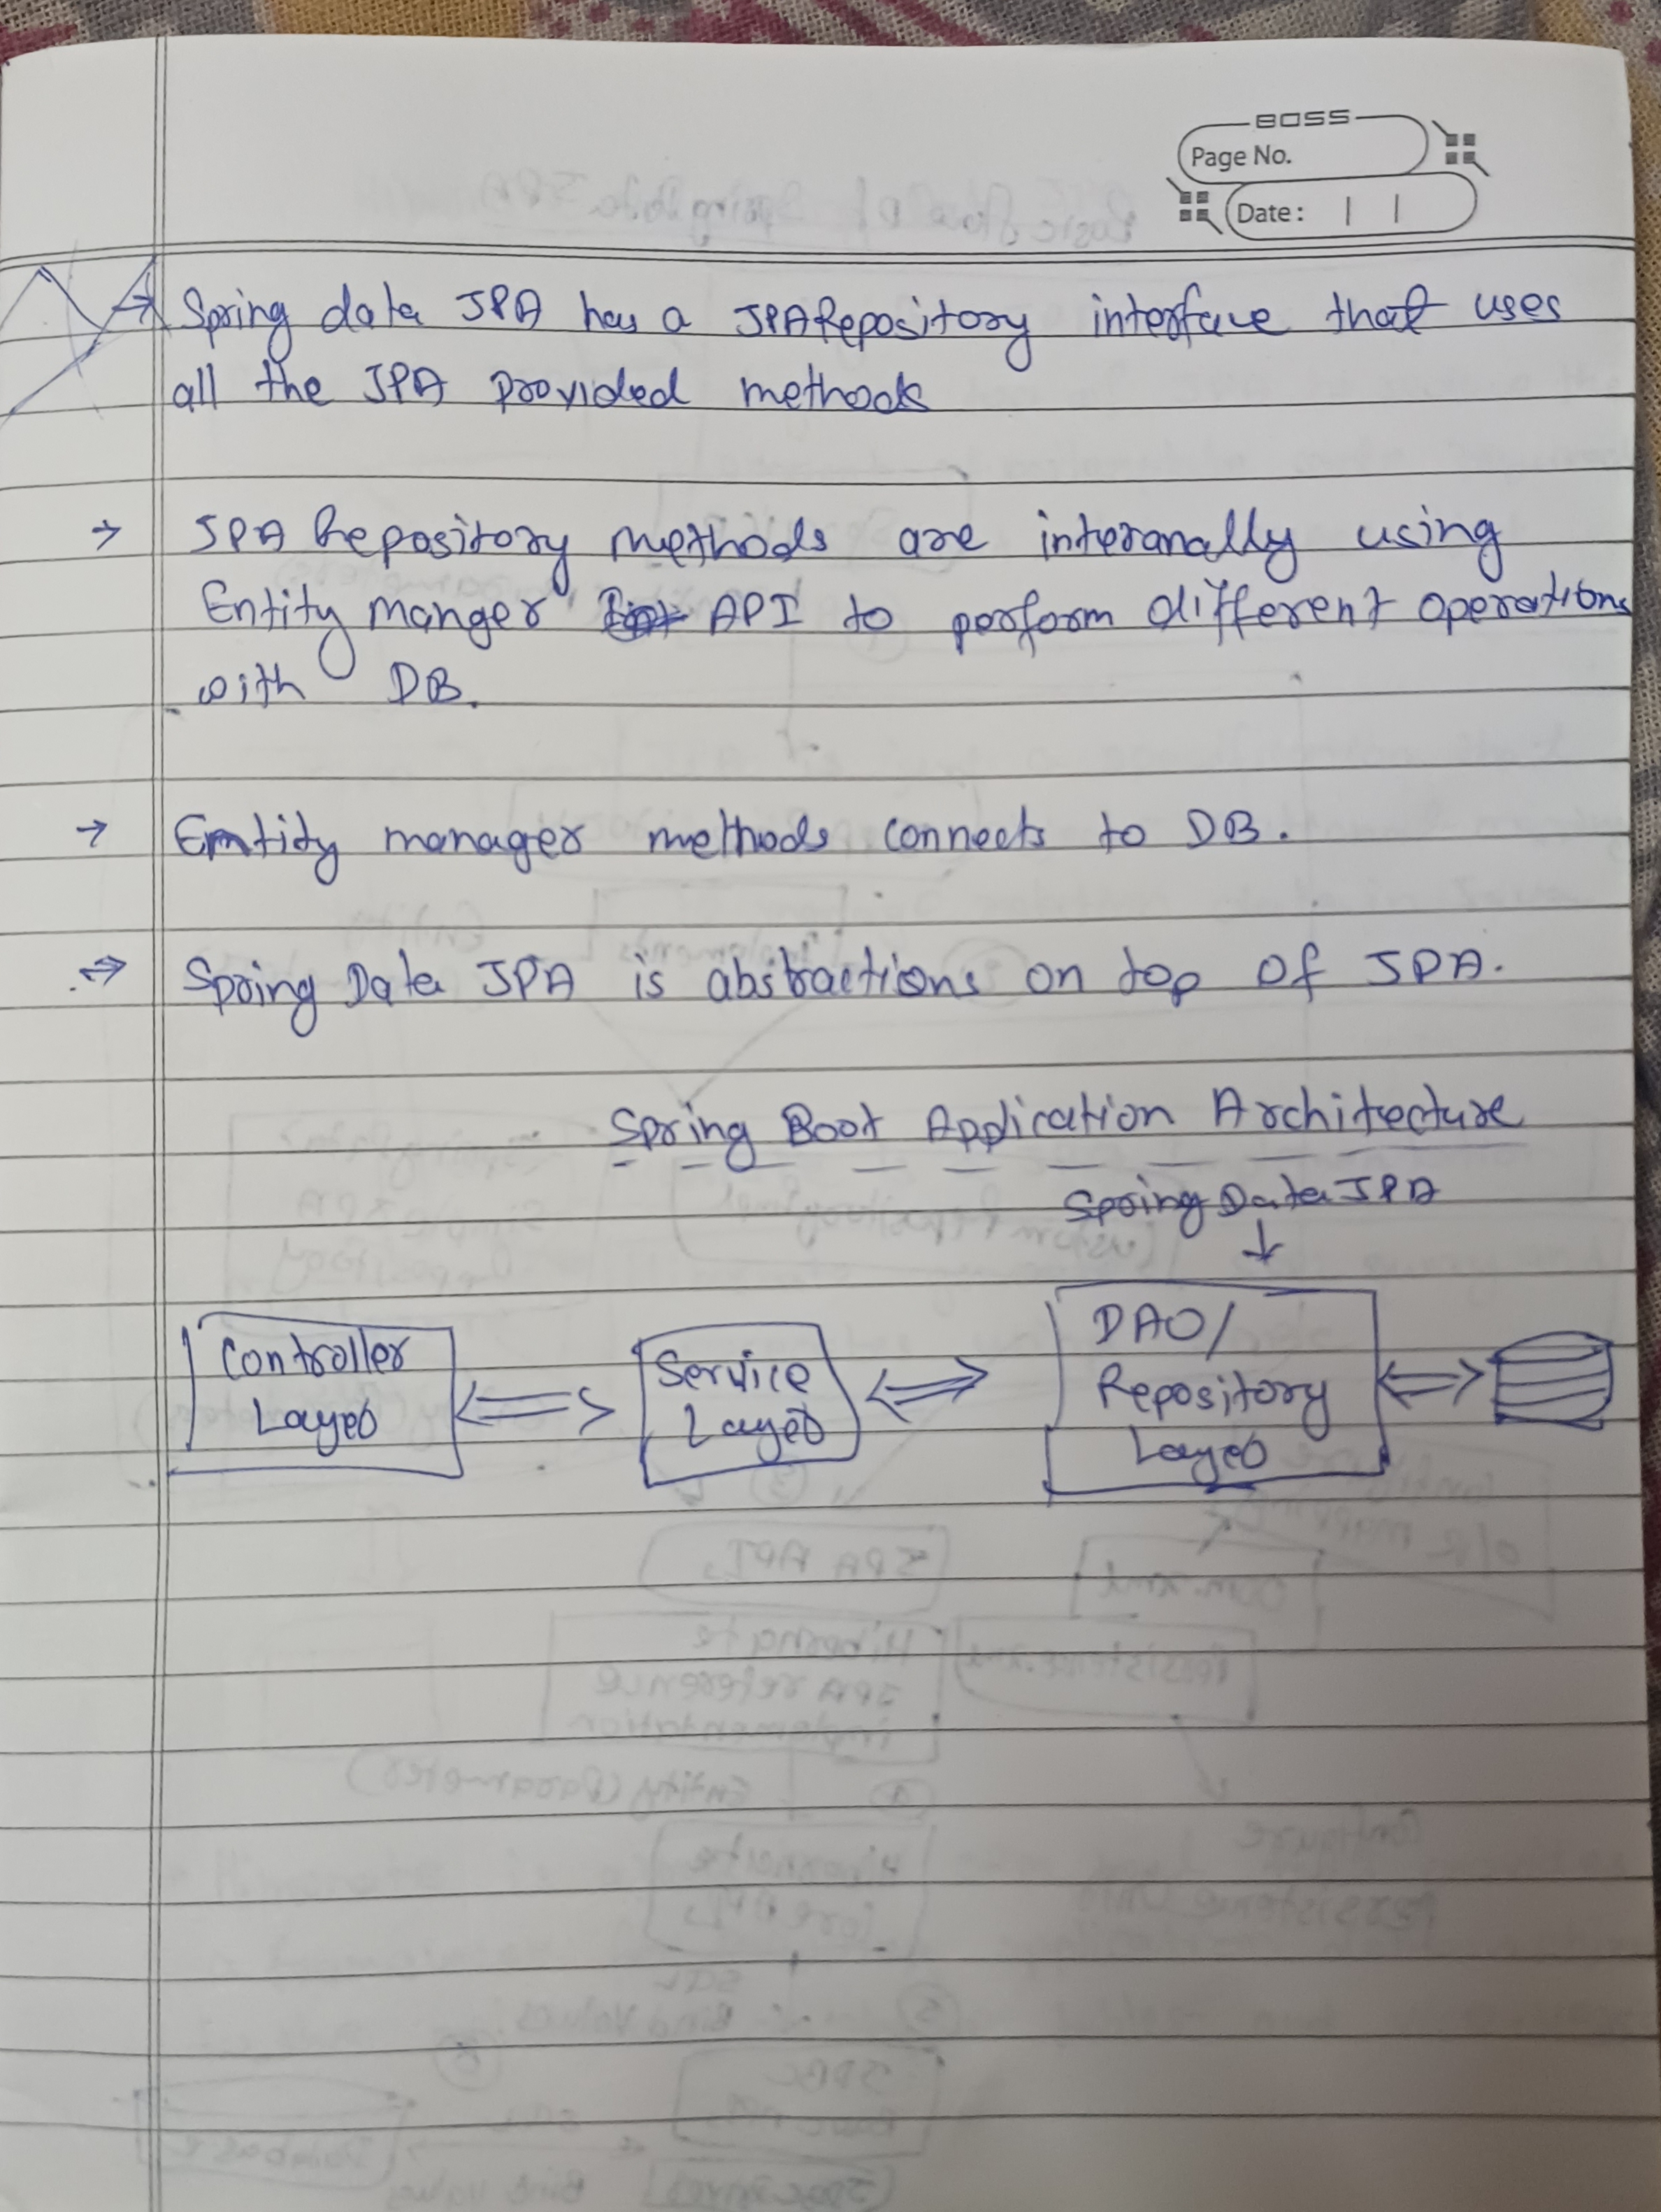 BOSS
Page No.
Date: | |
→ Spring data JPA has a JPARepository interface that uses
all the JPA provided methods
→ JPA Repository methods are interanally using
Entity manger API to perform different operations
with DB.
→ Entity manager methods connects to DB.
⇒ Spring Data JPA is abstractions on top of JPA.
Spring Boot Application Architecture
Spring Data JPA
↓
Controller
Layer
Service
Layer
DAO/
Repository
Layer